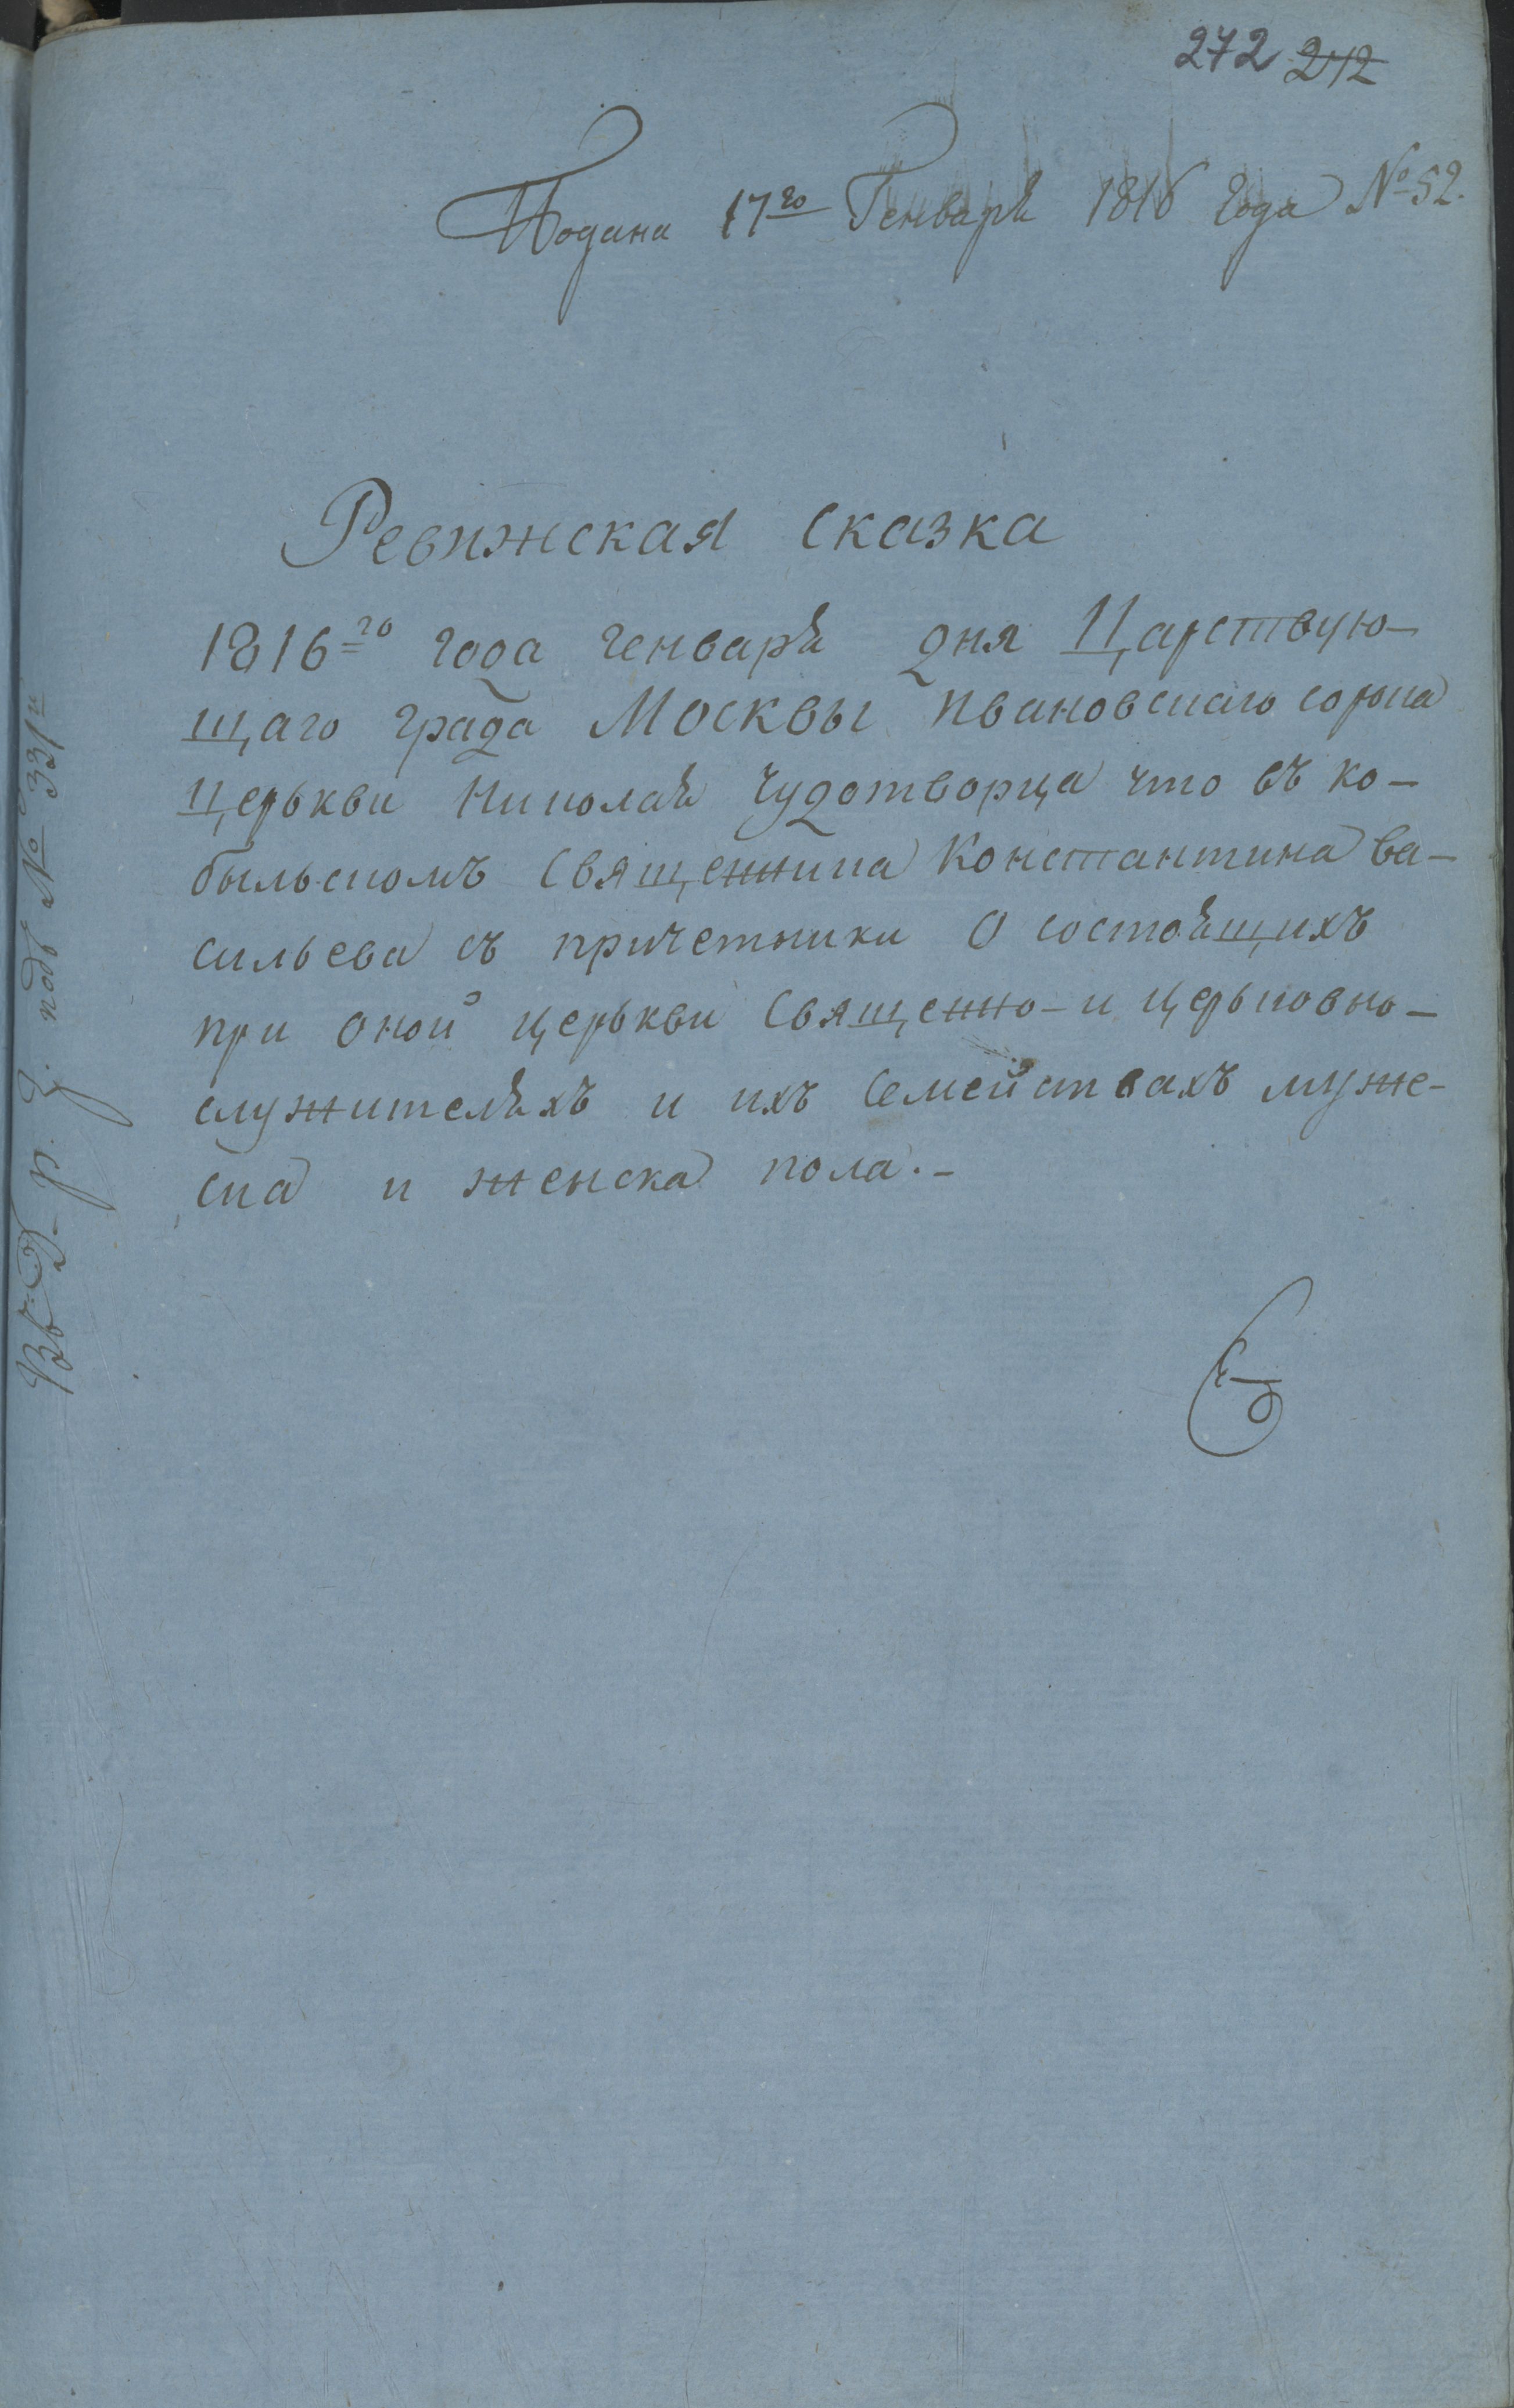 272 212
Подана 17го Генваря 1816 года № 52.
Ревижская сказка
1816го года генваря дня Царствую-
щаго града Москвы Ивановскаго сорока
церькви Николая Чудотворца что въ ко-
быльскомъ Священника Константина Ва-
сильева съ причетники О состоящихъ
при оной церькви Священно- и церьковно-
служителяхъ и ихъ Семействахъ муже-
ска и женска пола.-
подъ № 331й